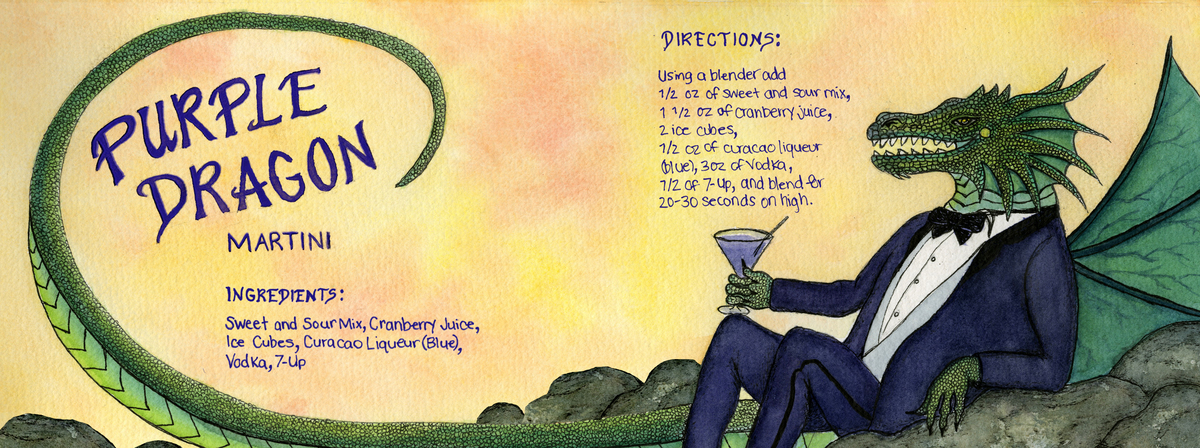 PURPLE
DRAGON
MARTINI
INGREDIENTS:
Sweet and Sour Mix, Cranberry Juice,
Ice Cubes, Curacao Liqueur (Blue),
Vodka, 7-Up
DIRECTIONS:
Using a blender add
1/2 oz of sweet and sour mix,
1 1/2 oz of cranberry juice,
2 ice cubes,
1/2 oz of curacao liqueur
(blue), 3oz of Vodka,
1/2 of 7-Up, and blend for
20-30 seconds on high.